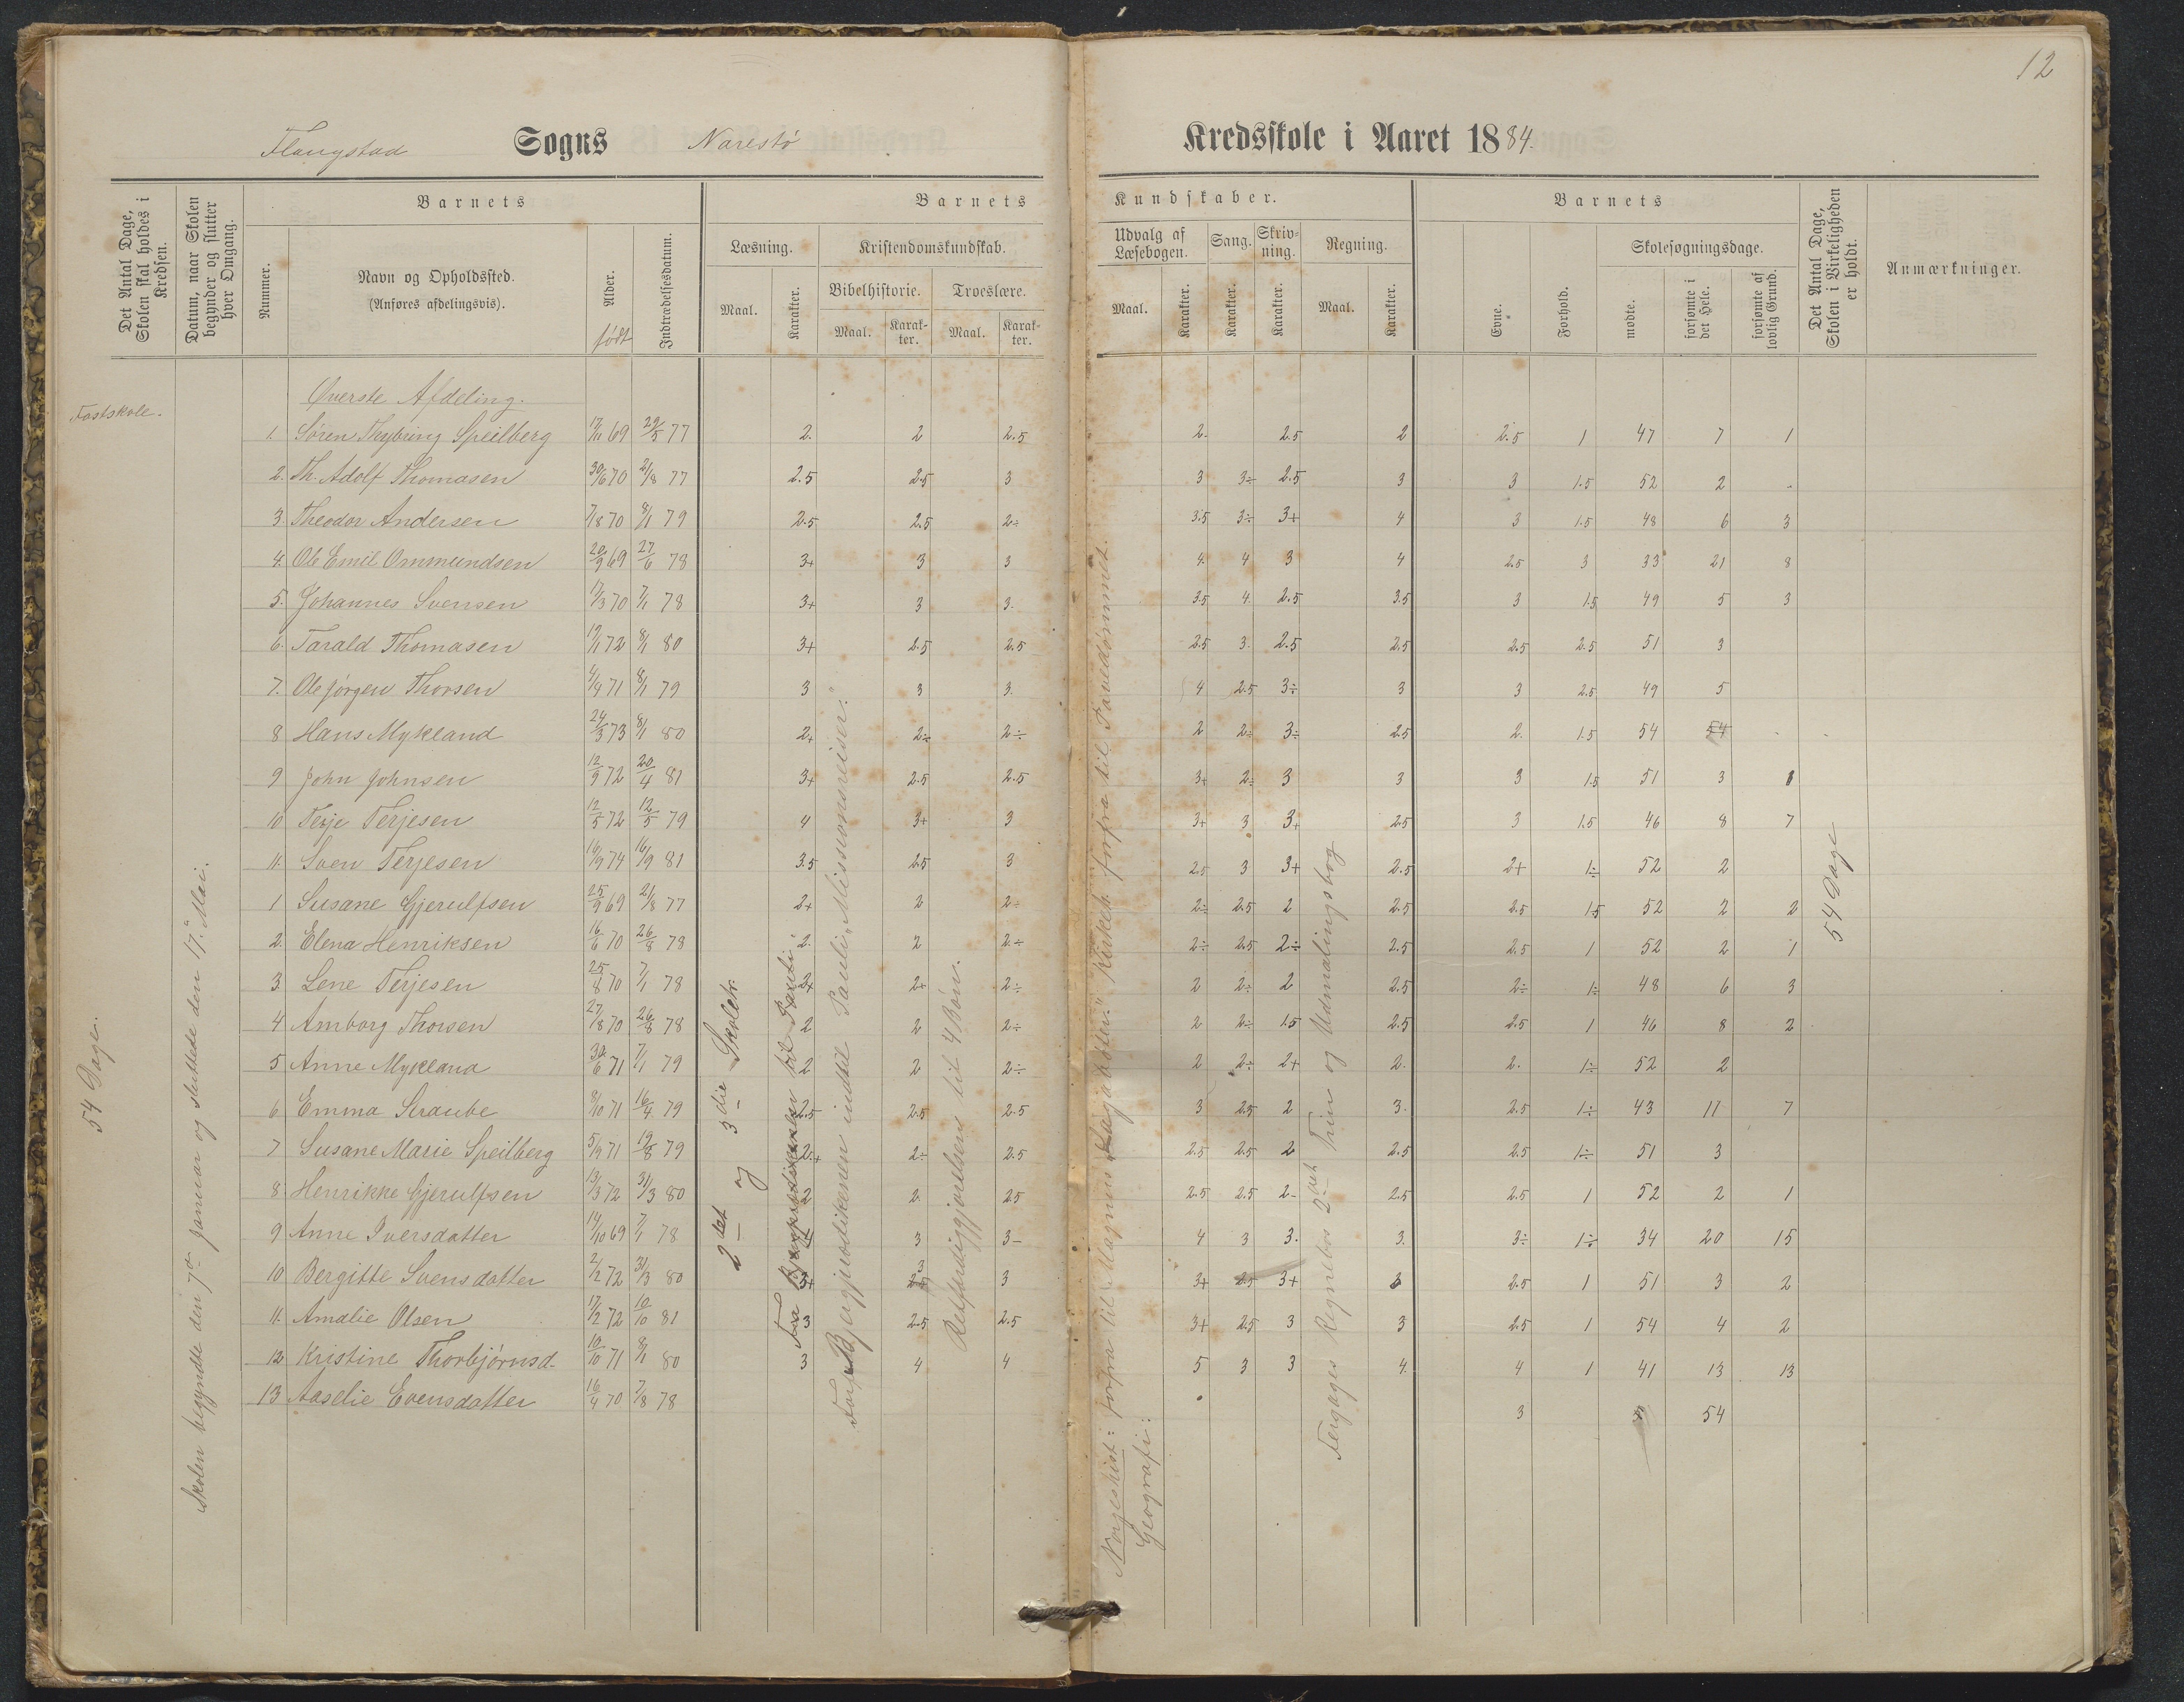 12
Flangstad Sogns Narestö Kredsskole i Aaret 1884.
Det Antal Dage, Skolen skal holdes i Kredsen.
Datum, naar Skolen begynder og slutter hver Omgang.
Nummer.
Barnets
Navn og Opholdssted.
(Anføres afdelingsvis).
Alder.
født
Indtrædelsesdatum.
Barnets Kundskaber.
Læsning.
Maal. Karakter.
Kristendomskundskab.
Bibelhistorie. Troeslære.
Maal. Karakter. Maal. Karakter.
Udvalg af Læsebogen.
Maal. Karakter.
Sang.
Karakter.
Skrivning.
Karakter.
Regning.
Maal. Karakter.
Barnets
Evne. Forhold.
Skolesøgningsdage.
mødte. forsømte i det Hele. forsømte af lovlig Grund.
Det Antal Dage, Skolen i Virkeligheden er holdt.
Anmærkninger.
Fastskole.
54 Dage.
Skolen begyndte den 7de Januar og sluttede den 17. Mai.
Øverste Afdeling.
1. Sören Thybring Speilberg 17/11 69 29/5 77 2. 2 2.5 2. 2.5 2 2.5 1 47 7 1
2. Th. Adolf Thomasen 30/6 70 21/8 77 2.5 2.5 3 3 3÷ 2.5 3 3 1.5 52 2
3. Theodor Andersen 7/8 70 8/1 79 2.5 2.5 2÷ 3.5 3÷ 3+ 4 3 1.5 48 6 3
4. Ole Emil Ommundsen 20/9 69 27/6 78 3+ 3 3 4. 4 3 4 2.5 3 33 21 8
5. Johannes Svensen 17/3 70 7/1 78 3+ 3 3. 3.5 4. 2.5 3.5 3 1.5 49 5 3
6. Tarald Thomasen 19/1 72 8/1 80 3+ 2.5 2.5 2.5 3. 2.5 2.5 2.5 2.5 51 3
7. Ole Jörgen Thorsen 4/4 71 8/1 79 3 3 3. 4 2.5 3÷ 3 3 2.5 49 5
8 Hans Mykland 24/3 73 8/1 80 2+ 2÷ 2÷ 2 2÷ 3÷ 2.5 2. 1.5 54 54
9 John Johnsen 12/9 72 20/4 81 3+ 2.5 2.5 3+ 2÷ 3 3 3 1.5 51 3 1
10 Terje Terjesen 12/5 72 12/5 79 4 3+ 3 3+ 3 3+ 2.5 3 1.5 46 8 7
11. Sven Terjesen 16/9 74 16/9 81 3.5 2.5 3 2.5 3 3+ 2.5 2+ 1÷ 52 2
1 Susane Gjerulfsen 25/9 69 21/8 77 2+ 2 2÷ 2÷ 2.5 2 2.5 2.5 1.5 52 2 2
2. Elena Henriksen 16/6 70 26/8 78 2. 2 2÷ 2÷ 2.5 2÷ 2.5 2.5 1 52 2 1
3. Lene Terjesen 25/8 70 7/1 78 2+ 2+ 2÷ 2 2÷ 2 2.5 2÷ 1÷ 48 6 3
4 Amborg Thorsen 27/8 70 26/8 78 2 2 2÷ 2 2÷ 1.5 2.5 2.5 1 46 8 2
5 Anne Mykland 30/6 71 7/1 79 2 2 2÷ 2 2÷ 2+ 2. 2. 1÷ 52 2
6 Emma Straube 8/10 71 16/4 79 2.5 2.5 2.5 3 2.5 2 3. 2.5 1÷ 43 11 7
7 Susane Marie Speilberg 5/9 71 19/8 79 2+ 2÷ 2.5 2.5 2.5 2 2.5 2.5 1÷ 51 3
8. Henrikke Gjerulfsen 13/3 72 31/3 80 2 2. 2.5 2.5 2.5 2- 2.5 2.5 1 52 2 1
9 Anne Iversdatter 14/10 69 7/1 78 3 3- 4 3 3. 3. 3÷ 1÷ 34 20 15
10 Bergitte Svensdatter 2/2 72 31/3 80 3+ 3 3 3+ 2.5 3+ 3 2.5 1 51 3 2
11. Amalie Olsen 17/2 72 10/10 81 3 2.5 2.5 3+ 2.5 3 3 2.5 1 54 4 2
12 Kristine Thorbjörnsd. 10/10 71 8/1 80 3 4 4 5 3 3 4. 4 1 41 13 13
13 Aaselie Evensdatter 16/4 70 7/8 78 3 54
2det og 3die Skoletr.
Fra Bjergprædikenen til Pauli
Forfra Bjergprædikenen indtil Pauli "Missionsreiser."
Retfærdiggjørelsen til 4 Bøn.
Norgeshist: forfra til Magnus Lagabøter." Kirkeh. forfra til Pavedømmet.
Geografi:
Fergages Regnebos 2det Trin og Udmalingsbog
54 Dage